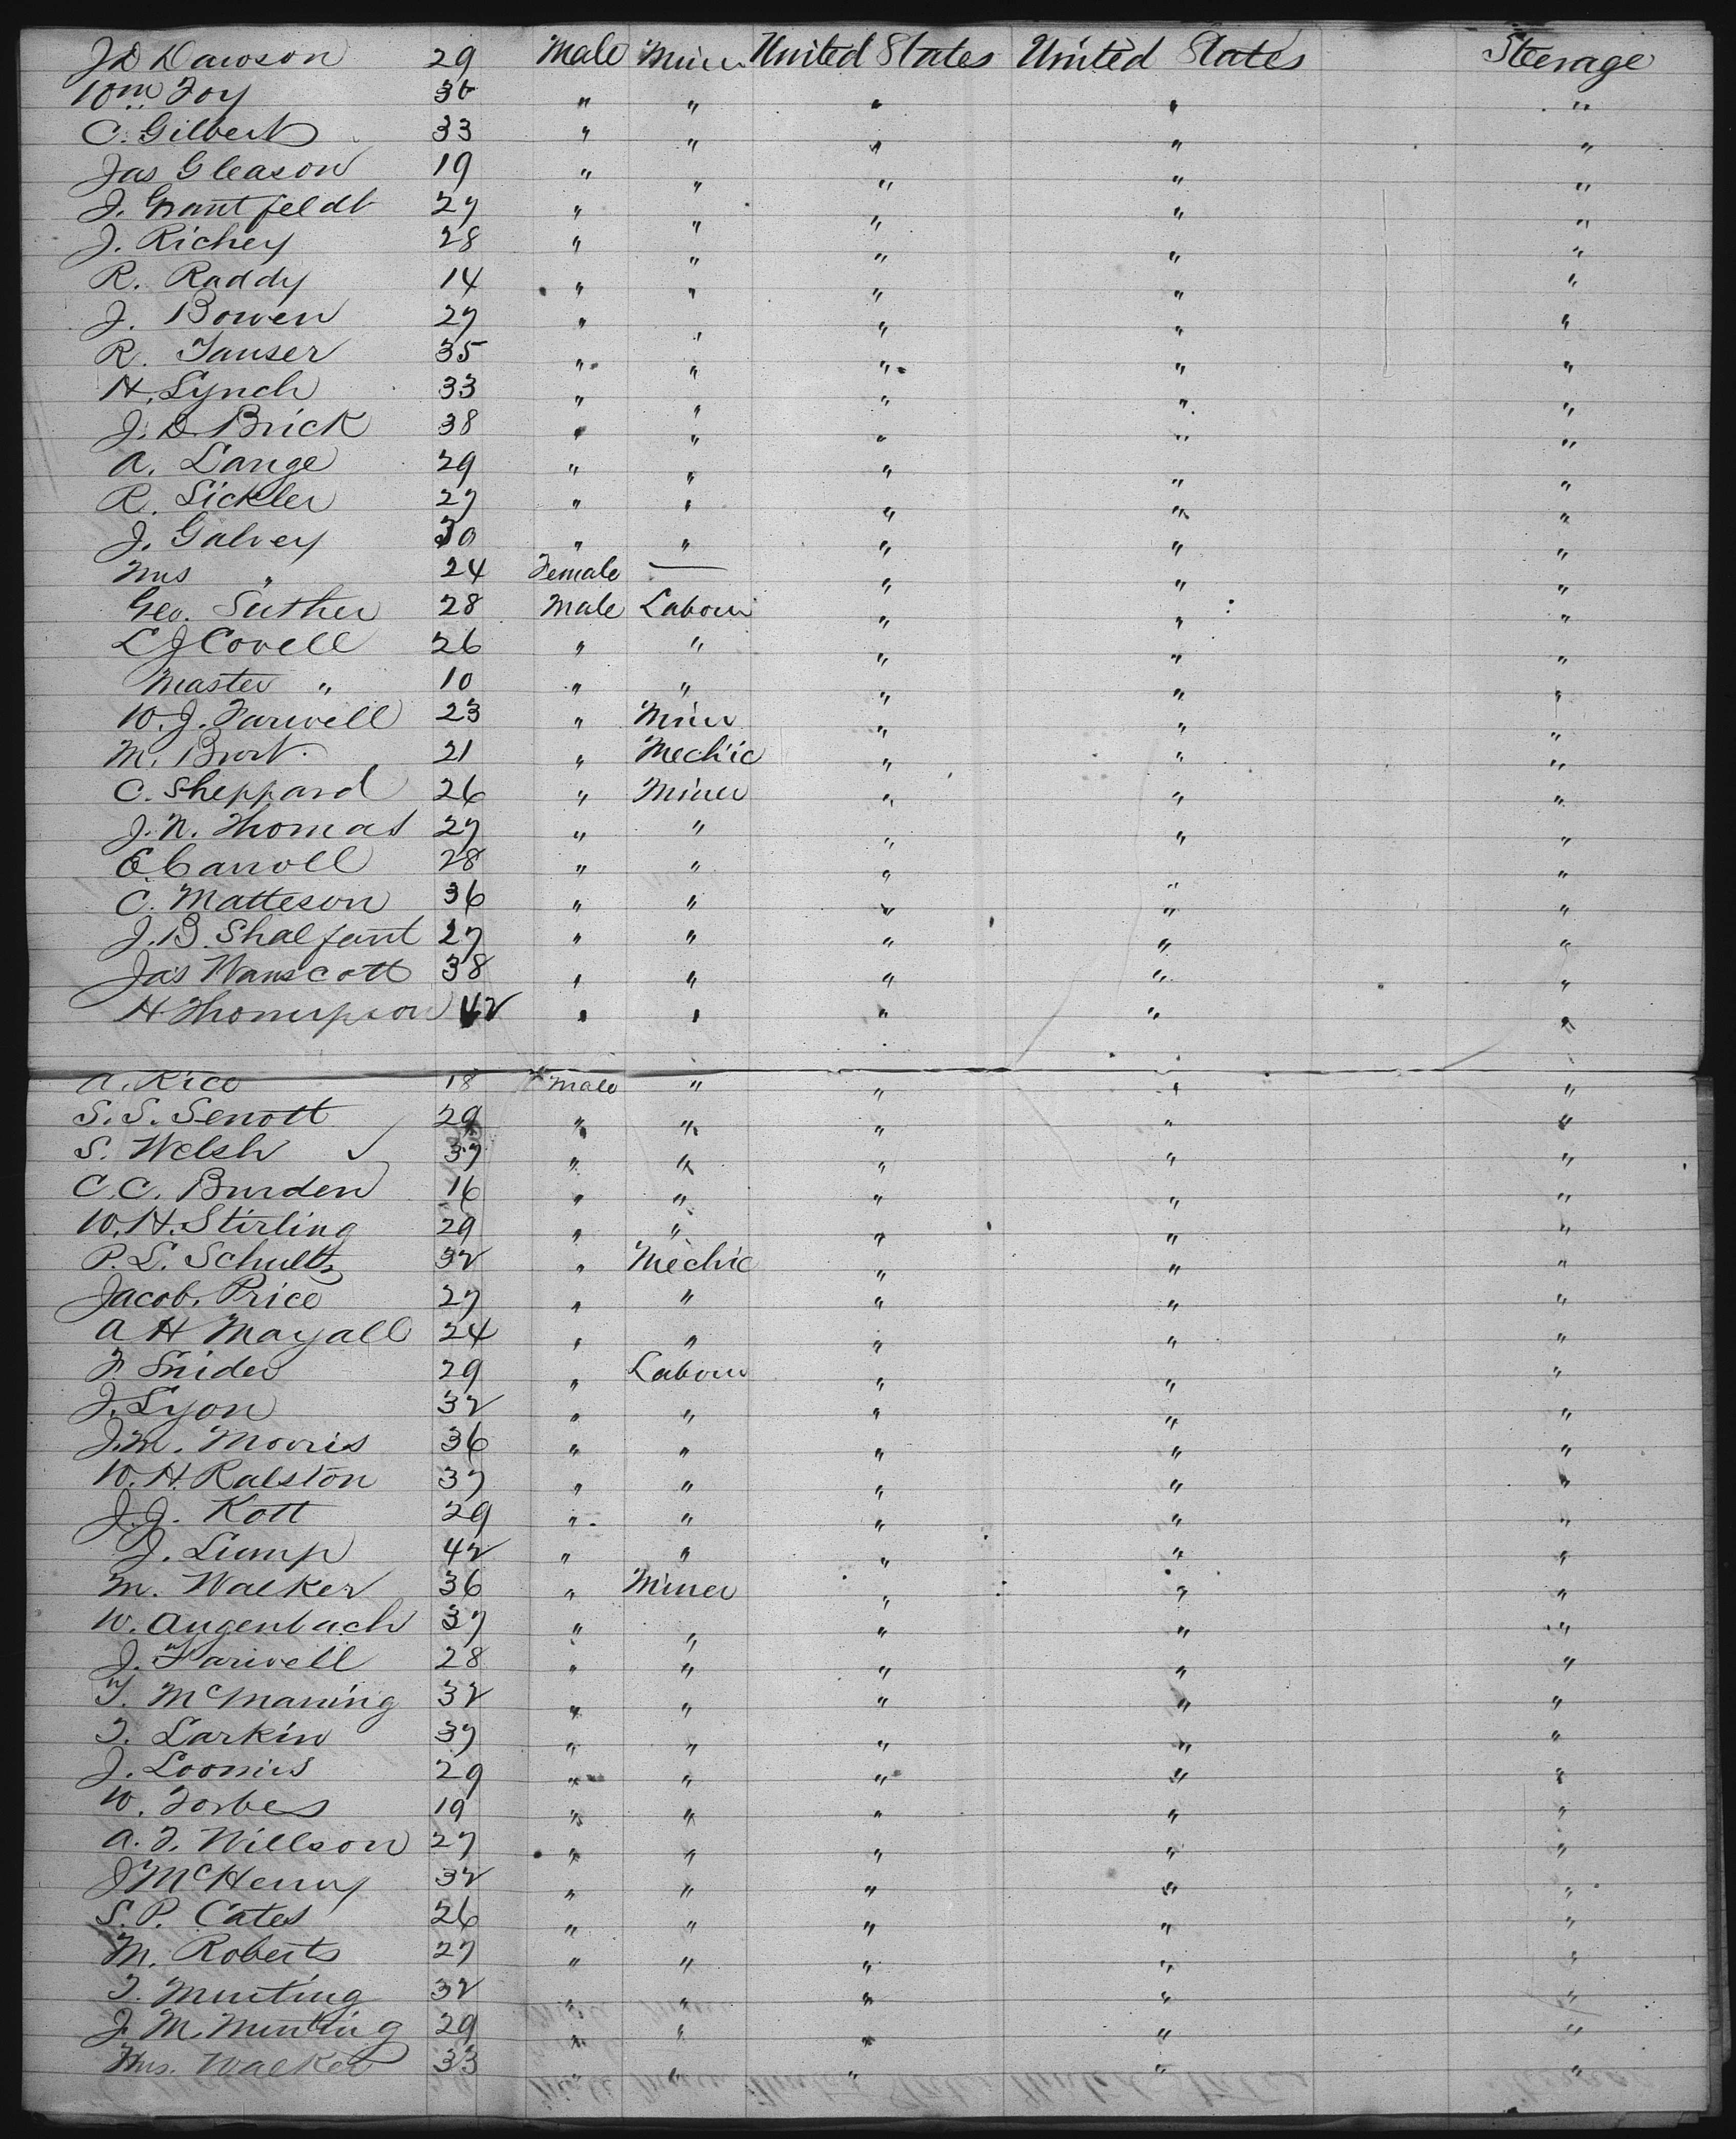 J D Dawson 29 Male Miner United States United States Steerage
Wm Foy 36 " " " " "
C. Gilbert 33 " " " " "
Jas Gleason 19 " " " " "
J. Grantfeldt 27 " " " " "
J. Richey 28 " " " " "
R. Raddy 14 " " " " "
J. Bowen 27 " " " " "
R. Tauser 35 " " " " "
H. Lynch 33 " " " " "
J. D. Brick 38 " " " " "
A. Lange 29 " " " " "
R. Sickler 27 " " " " "
J. Galvey 30 " " " " "
Mrs " 24 Female — " " "
Geo. Suther 28 Male Labour " " "
L J Covell 26 " " " " "
Master " 10 " " " " "
W. J. Farwell 23 " Miner " " "
M. Burt 21 " Mechic " " "
C. Sheppard 26 " Miner " " "
J. N. Thomas 27 " " " " "
E. Carroll 28 " " " " "
C. Matteson 36 " " " " "
J. B. Shalfant 27 " " " " "
Jas Wanscott 38 " " " " "
H Thompson 42 " " " " "
A. Rice 18 Male " " " "
S. S. Senott 29 " " " " "
S. Welsh 37 " " " " "
C. C. Burden 16 " " " " "
W. H. Stirling 29 " " " " "
P. L. Schultz 32 " Mechic " " "
Jacob Price 27 " " " " "
A H Mayall 24 " " " " "
F. Snider 29 " Labour " " "
J. Lyon 32 " " " " "
J. M. Morris 36 " " " " "
W. H. Ralston 37 " " " " "
J. J. Kott 29 " " " " "
J. Lump 42 " " " " "
M. Walker 36 " Miner " " "
W. Augenbach 37 " " " " "
J. Farwell 28 " " " " "
T. McManing 32 " " " " "
T. Larkin 37 " " " " "
J. Loomis 29 " " " " "
W. Forbes 19 " " " " "
A. F. Willson 27 " " " " "
J McHenry 32 " " " " "
S. P. Cates 26 " " " " "
M. Roberts 27 " " " " "
T. Munting 32 " " " " "
J. M. Munting 29 " " " " "
Mrs. Walker 33 " " " " "